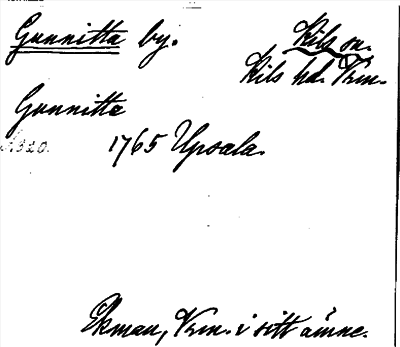 Gunnitta by.
Kils sn.
Kils hd. Vrm.
Gunnitta
S. 320.
1765 Upsala.
Ekman, Vrm. i sitt ämne.